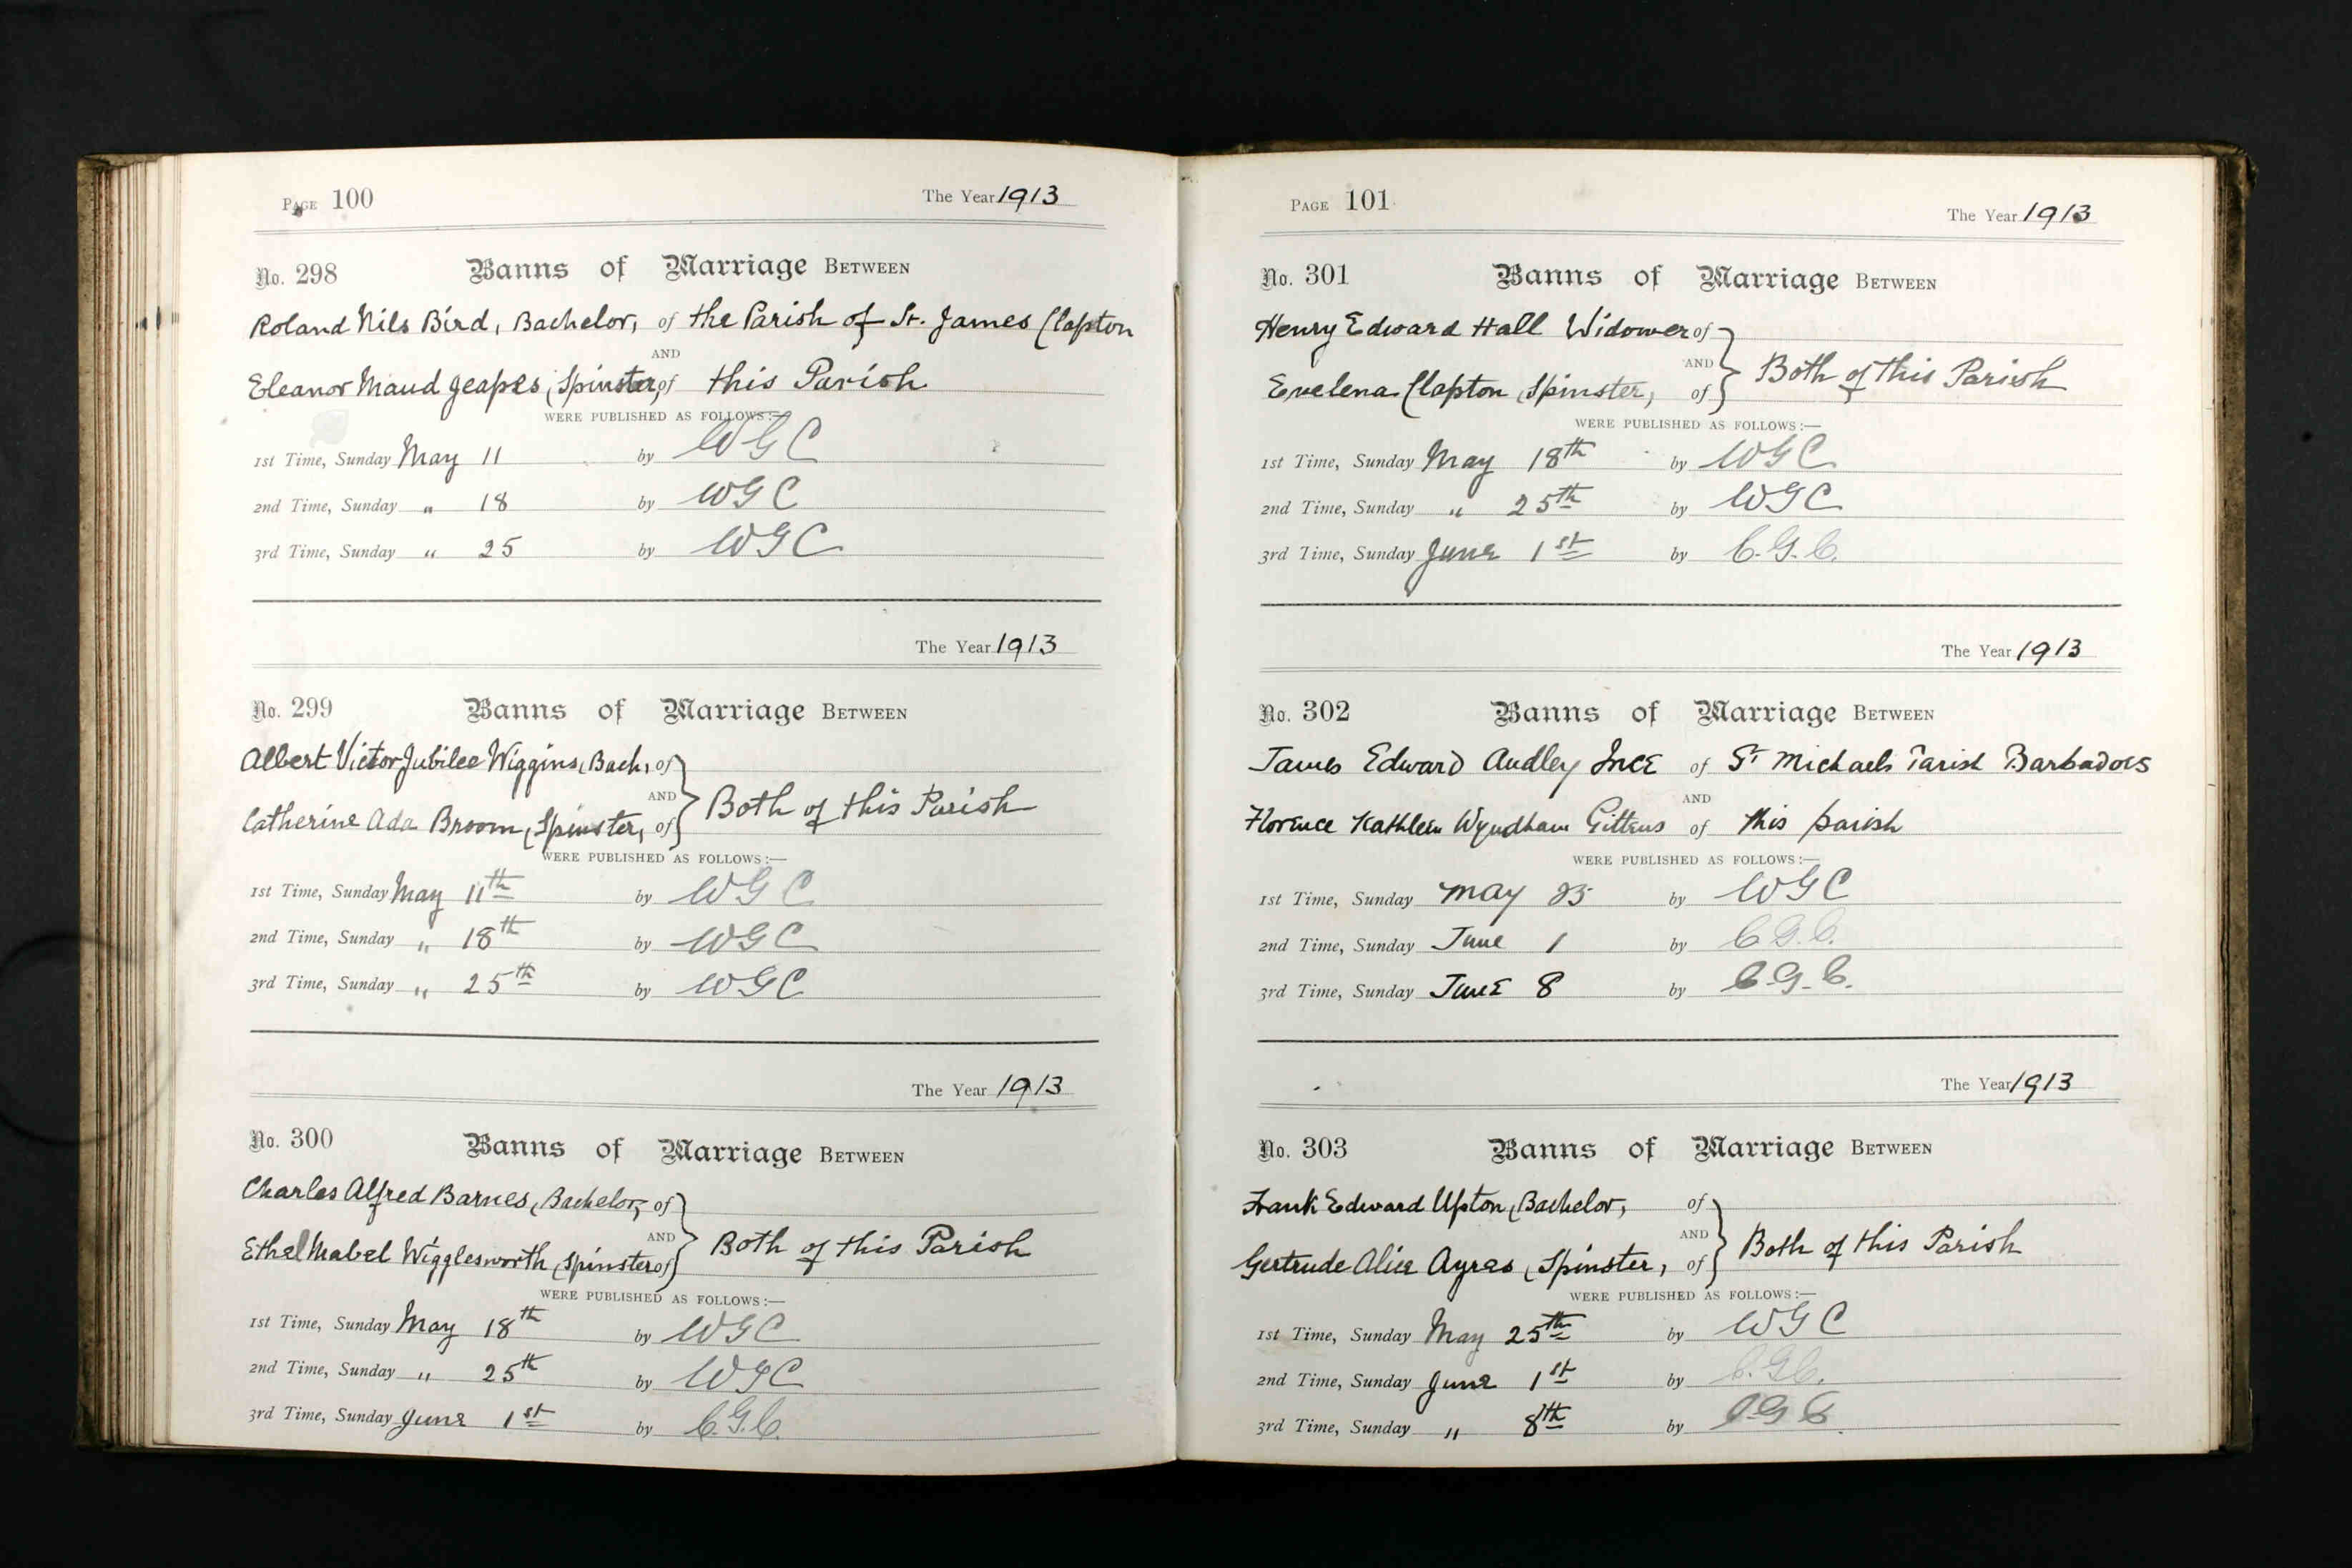 PAGE 100 The Year 1913
No. 298 Banns of Marriage BETWEEN
Roland Nils Bird, Bachelor, of the Parish of St. James Clapton
AND
Eleanor Maud Geapes, Spinster, of this Parish
WERE PUBLISHED AS FOLLOWS:—
1st Time, Sunday May 11 by WGC
2nd Time, Sunday " 18 by WGC
3rd Time, Sunday " 25 by WGC
The Year 1913
No. 299 Banns of Marriage BETWEEN
Albert Victor Jubilee Wiggins, Bach, of
AND Both of this Parish
Catherine Ada Broom, Spinster, of
WERE PUBLISHED AS FOLLOWS:—
1st Time, Sunday May 11th by WGC
2nd Time, Sunday " 18th by WGC
3rd Time, Sunday " 25th by WGC
The Year 1913
No. 300 Banns of Marriage BETWEEN
Charles Alfred Barnes, Bachelor, of
AND Both of this Parish
Ethel Mabel Wigglesworth, Spinster of
WERE PUBLISHED AS FOLLOWS:—
1st Time, Sunday May 18th by WGC
2nd Time, Sunday " 25th by WGC
3rd Time, Sunday June 1st by C.G.C.
PAGE 101 The Year 1913
No. 301 Banns of Marriage BETWEEN
Henry Edward Hall Widower of
AND Both of this Parish
Evelena Clapton, Spinster, of
WERE PUBLISHED AS FOLLOWS:—
1st Time, Sunday May 18th by WGC
2nd Time, Sunday " 25th by WGC
3rd Time, Sunday June 1st by C.G.C.
The Year 1913
No. 302 Banns of Marriage BETWEEN
James Edward Audley Ince of St Michaels Parish Barbadoes
AND
Florence Kathleen Wyndham Gittens of this parish
WERE PUBLISHED AS FOLLOWS:—
1st Time, Sunday May 25 by WGC
2nd Time, Sunday June 1 by C.G.C.
3rd Time, Sunday June 8 by C.G.C.
The Year 1913
No. 303 Banns of Marriage BETWEEN
Frank Edward Upton, Bachelor, of
AND Both of this Parish
Gertrude Alice Ayres, Spinster, of
WERE PUBLISHED AS FOLLOWS:—
1st Time, Sunday May 25th by WGC
2nd Time, Sunday June 1st by C.G.C.
3rd Time, Sunday " 8th by C.G.C.